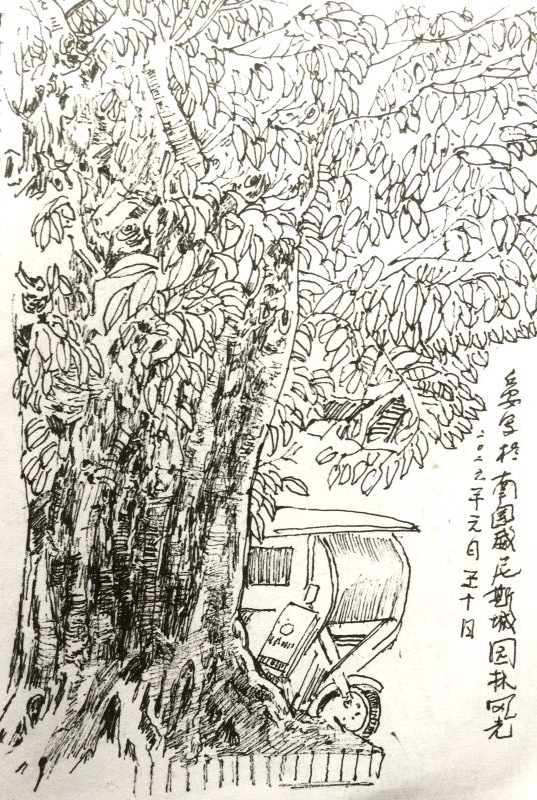 写於南国威尼斯城园林风光
二〇二六年元月五十日